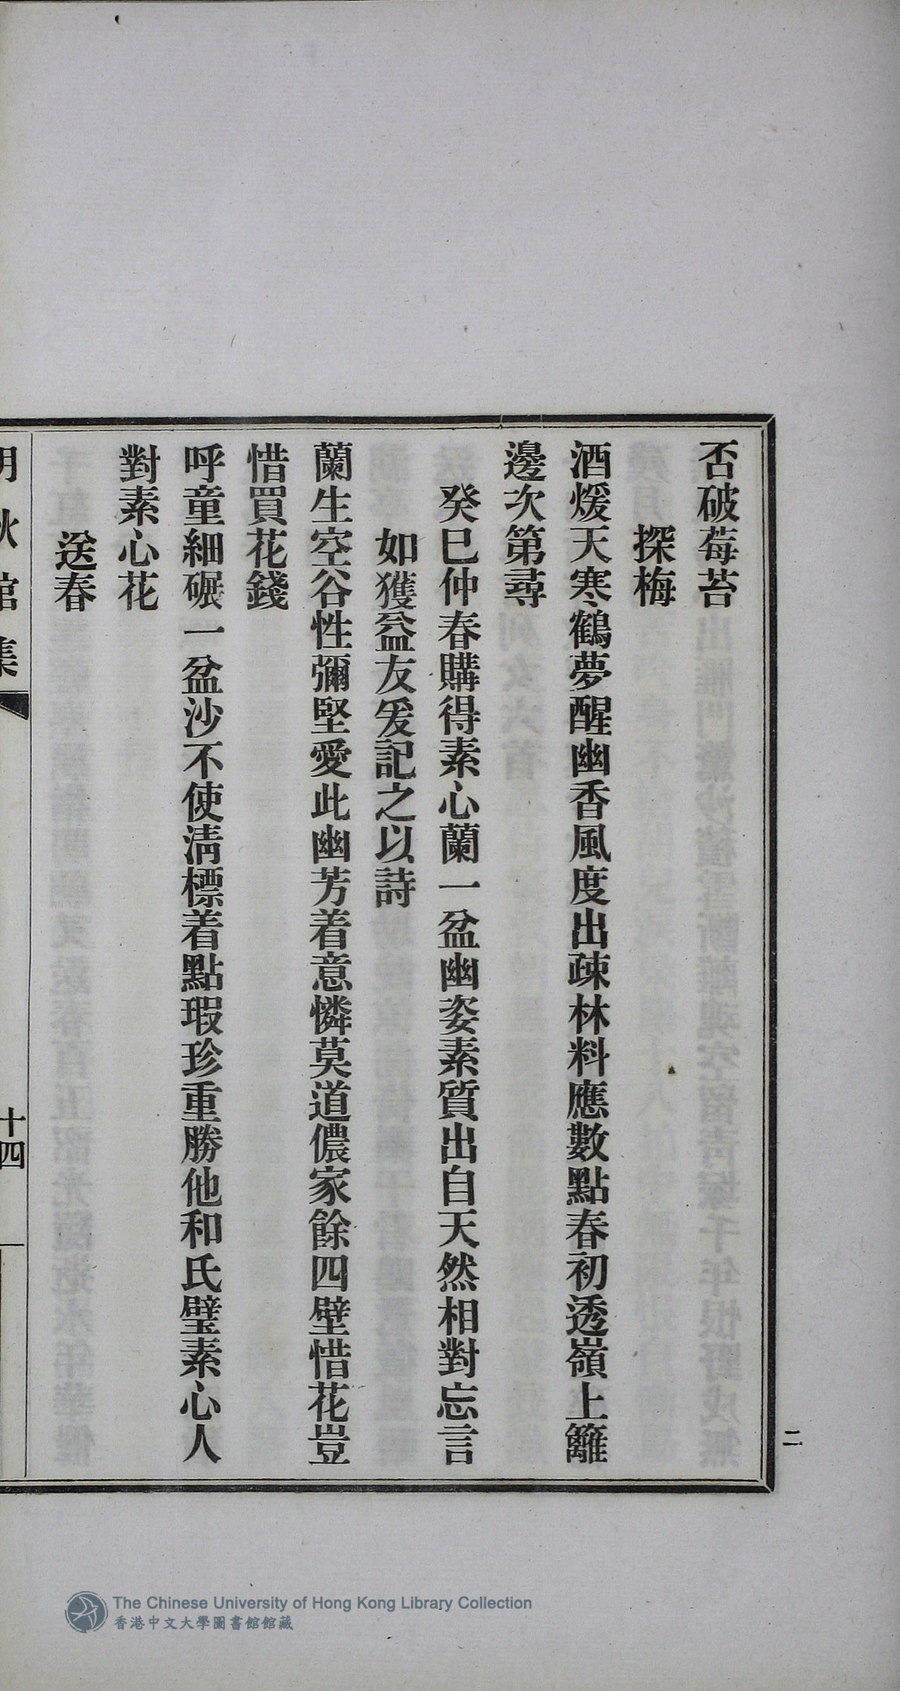 否破莓苔
探梅
酒煖天寒鶴夢醒幽香風度出疎林料應數點春初透嶺上籬
邊次第尋
癸巳仲春購得素心蘭一盆幽姿素質出自天然相對忘言
如獲益友爰記之以詩
蘭生空谷性彌堅愛此幽芳着意憐莫道儂家餘四壁惜花豈
惜買花錢
呼童細碾一盆沙不使淸標着點瑕珍重勝他和氏璧素心人
對素心花
送春
秋館集
十四
二
The Chinese University of Hong Kong Library Collection
香港中文大學圖書館館藏